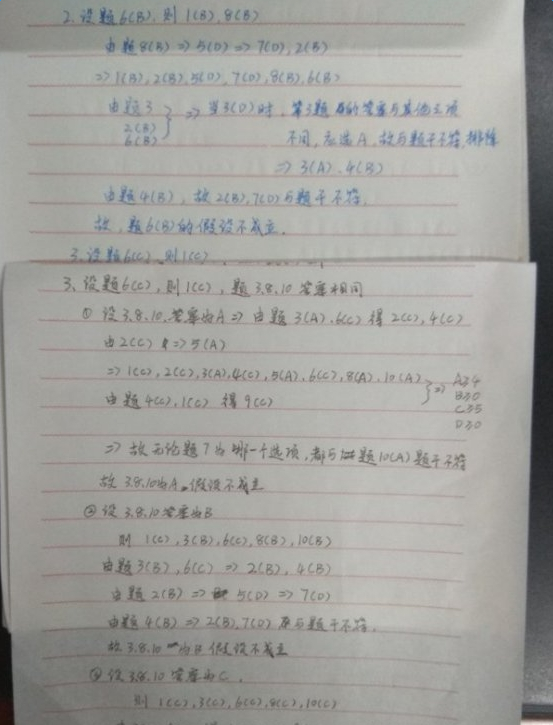 2. 设题6(B), 则1(B), 8(B)
由题8(B) => 5(D) => 7(D), 2(B)
=> 1(B), 2(B), 5(D), 7(D), 8(B), 6(B)
由题3
2(B)
6(B)
} => 当3(D)时, 第3题的答案与其他三项
不同, 应选A, 故与题干不符, 排除
=> 3(A), 4(B)
由题4(B), 故2(B), 7(D)与题干不符,
故, 题6(B)的假设不成立.
3. 设题6(C), 则1(C)
3. 设题6(C), 则1(C), 题3.8.10答案相同
① 设3.8.10答案为A => 由题3(A), 6(C) 得2(C), 4(C)
由2(C) => 5(A)
=> 1(C), 2(C), 3(A), 4(C), 5(A), 6(C), 8(A), 10(A)
由题4(C), 1(C) 得9(C)
} => A≥4
B≥0
C≥5
D≥0
=> 故无论题7为哪一个选项, 都与题10(A)题干不符
故3.8.10为A, 假设不成立
② 设3.8.10答案为B
则 1(C), 3(B), 6(C), 8(B), 10(B)
由题3(B), 6(C) => 2(B), 4(B)
由题2(B) => 5(D) => 7(D)
由题4(B) => 2(B), 7(D) 与题干不符,
故3.8.10为B 假设不成立
③ 设3.8.10答案为C,
则 1(C), 3(C), 6(C), 8(C), 10(C)